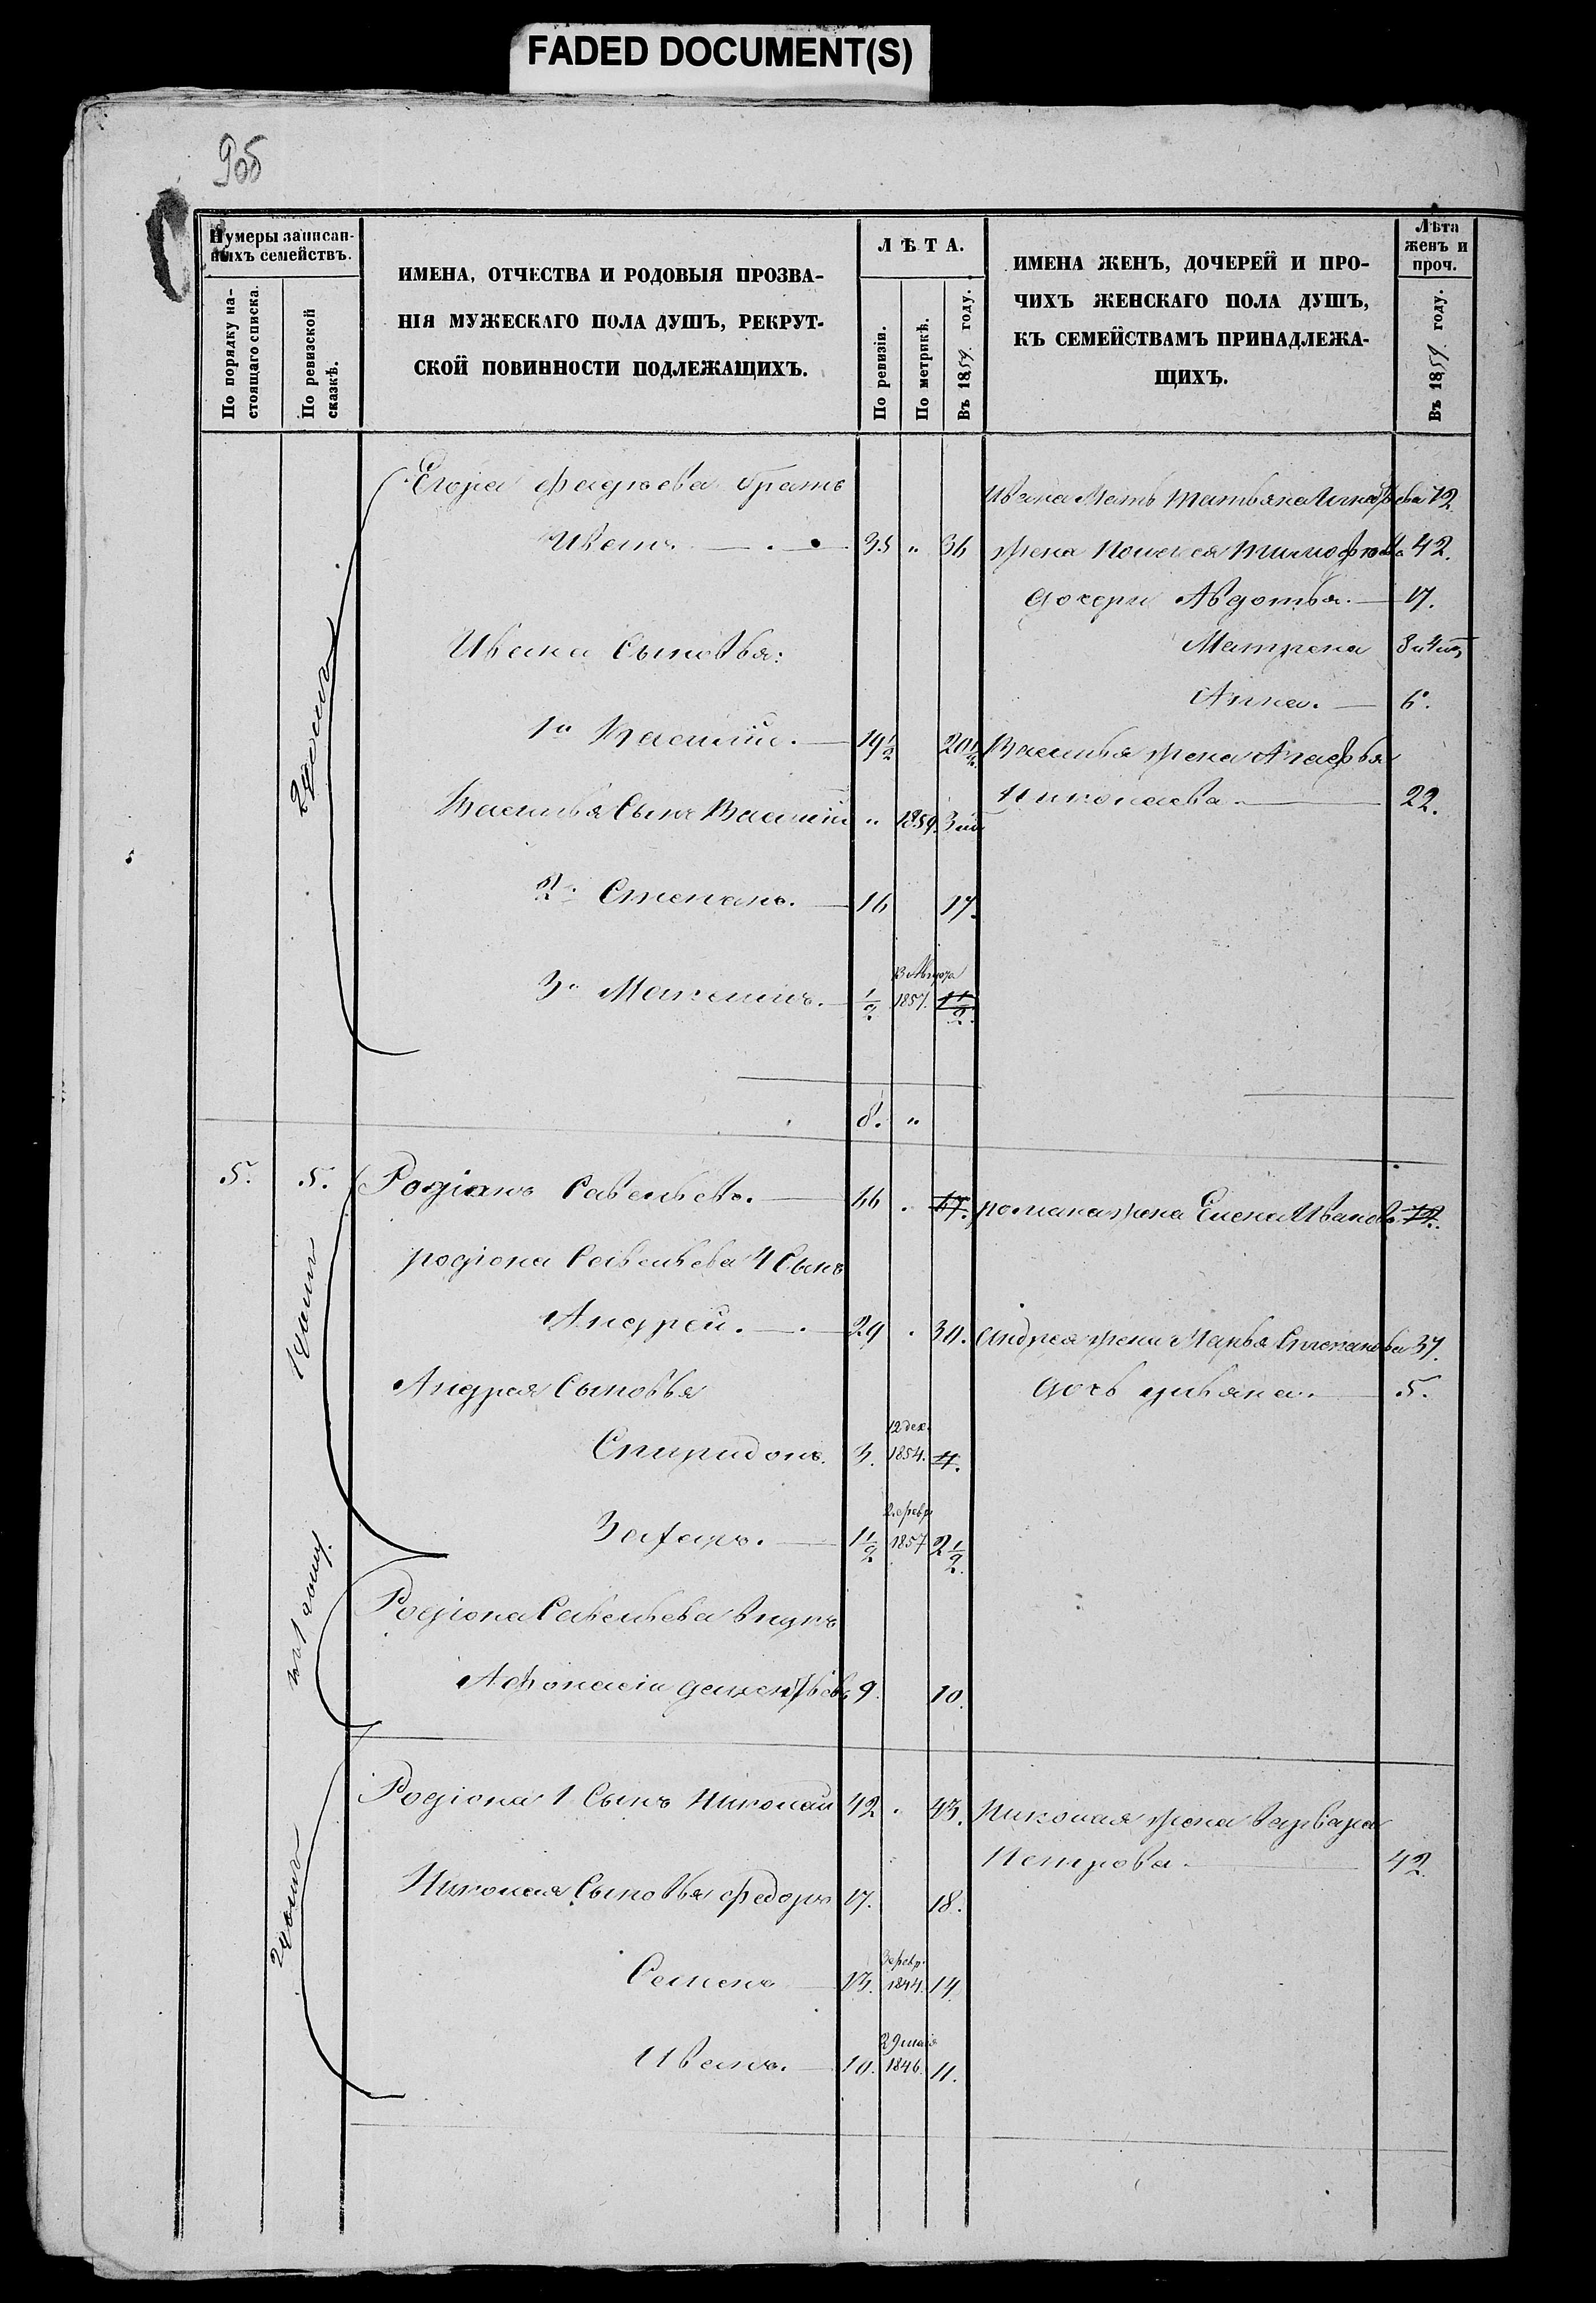 FADED DOCUMENT(S)
905
Нумеры записан-
ныхъ семействъ.
По порядку на-
стоящаго списка.
По ревизской
сказкѣ.
ИМЕНА, ОТЧЕСТВА И РОДОВЫЯ ПРОЗВА-
НІЯ МУЖЕСКАГО ПОЛА ДУШЪ, РЕКРУТ-
СКОЙ ПОВИННОСТИ ПОДЛЕЖАЩИХЪ.
ЛѢТА.
По ревизіи.
По метрикѣ.
Въ 1859 году.
ИМЕНА ЖЕНЪ, ДОЧЕРЕЙ И ПРО-
ЧИХЪ ЖЕНСКАГО ПОЛА ДУШЪ,
КЪ СЕМЕЙСТВАМЪ ПРИНАДЛЕЖА-
ЩИХЪ.
Лѣта
женъ и
проч.
Въ 1859 году.
Егора Фадѣева братъ
Ивана Мать Татьяна 72
Иванъ. 35 " 36 жена Тимофѣева 42.
дочери Авдотья. 17.
Ивана Сыновья: Матрена 8
Анна. 6.
1й Василій. 19½ 20½ Василья жена Агафья
Николаева 22.
Василья Сынъ Василій " 1859. 3
2й Степанъ. 16 17.
2 дому
3й Максимъ. ½ 1857. 1½
8. "
5. 5. Родіонъ Савельевъ. 66 67. романа жена Елена Иванова 72.
родіона Савельева 4 Сынъ
Андрей. 29 30. Андрея жена Марья Степанова 37.
Андрея Сыновья дочь ульяна. 5.
12 дек.
Спиридонъ. 3. 1854. 4.
2 февр
Захаръ. 1½ 1857 2½
Родіона Савельева внукъ
Афонасій 9. 10.
Родіона 1 Сынъ Николай 42 " 43. Николая жена Варвара
Петрова. 42.
Николая Сыновья Федоръ 17. 18.
3 февр.
Семенъ 13. 1844. 14.
29 маія
Иванъ. 10. 1846. 11.